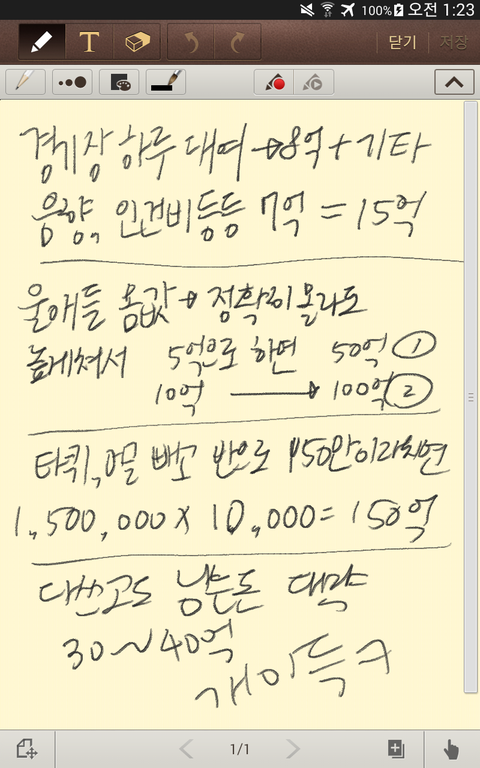 100% 오전 1:23
T 닫기 저장
경기장 하루 대여 → 8억 + 기타
음향, 인건비등등 7억 = 15억
울애들 몸값 → 정확히몰라도
높게쳐서 5억으로 하면 50억 ①
10억 → 100억 ②
티켓, 빼고 반으로 150만이라치면
1,500,000 × 10,000 = 150억
다쓰고도 남는돈 대략
30~40억
개이득ㅋ
1/1